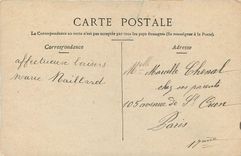 CARTE POSTALE
La Correspondance au recto n'est pas acceptée par tous les pays étrangers (Se renseigner à la Poste)
Correspondance
Adresse
affectueux baisers
Marie Naillard
Melle Marcelle Chenal
chez ses parents
105 avenue de St Ouen
Paris
17 eme